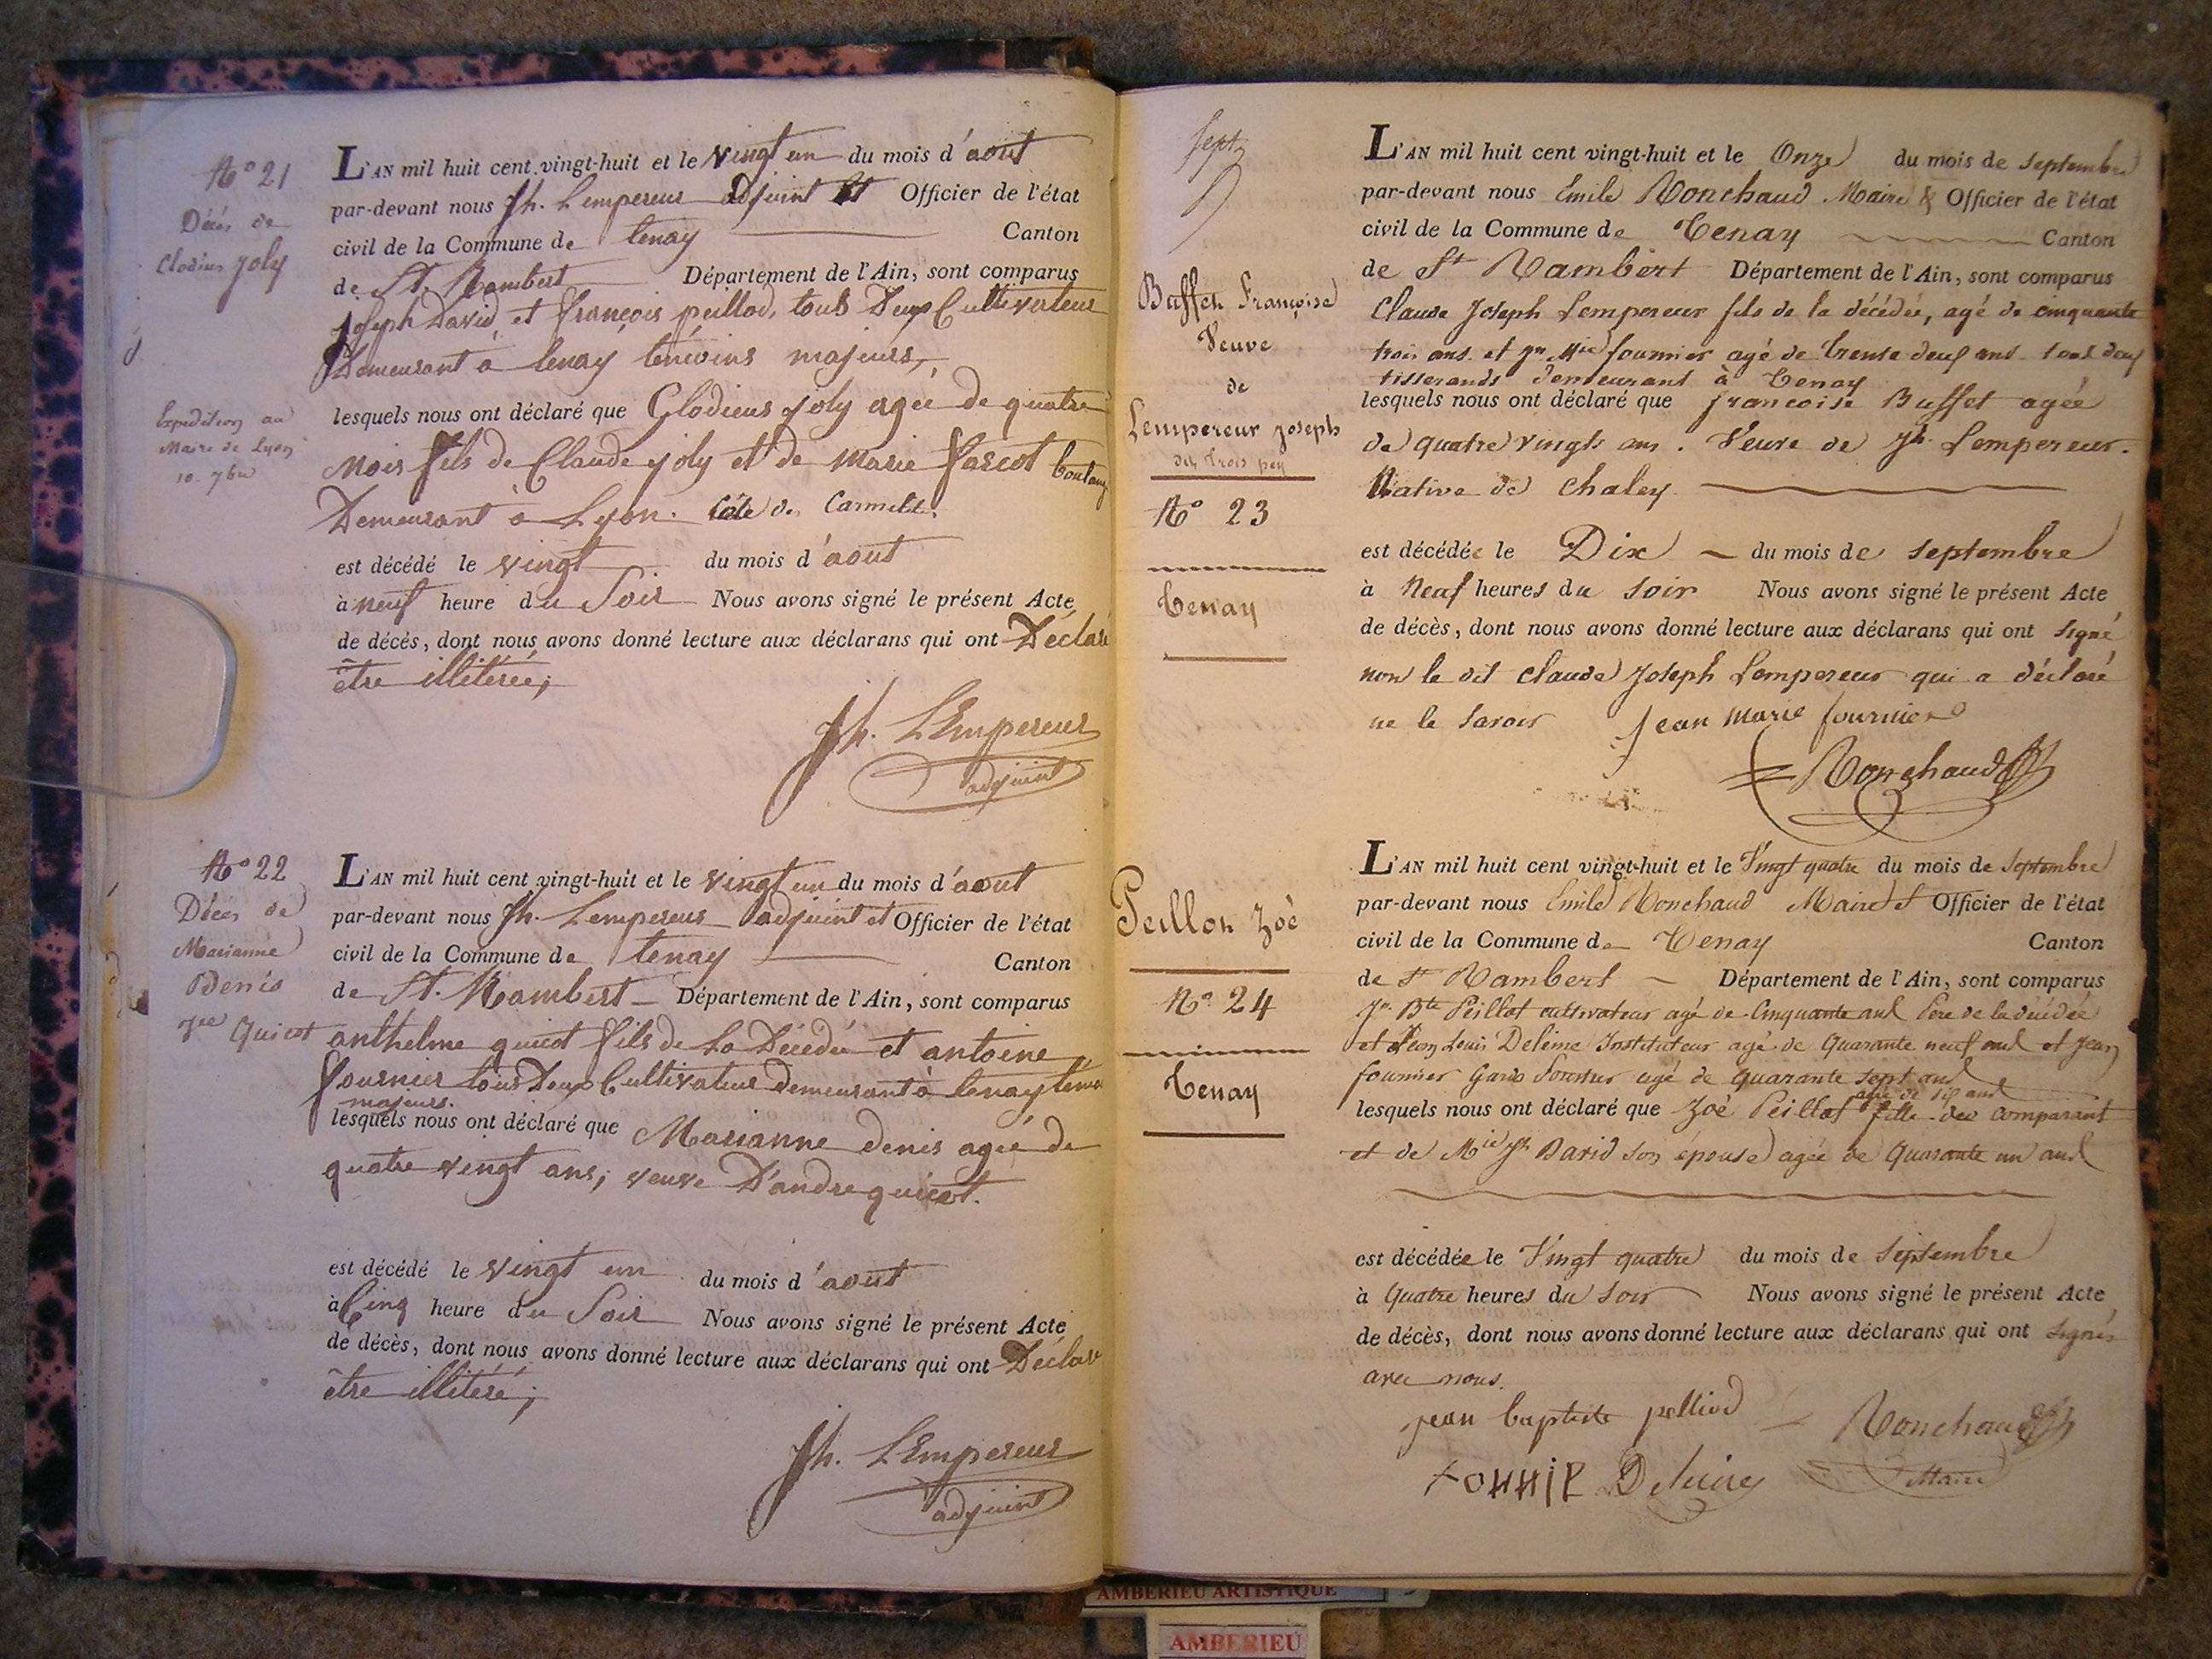 No 21
Décès de
Clodius Joly
Expédition au
Maire de Lyon
10. 7bre
L'AN mil huit cent vingt-huit et le vingt un du mois d'aout
par-devant nous Jh. Lempereur adjoint et Officier de l'état
civil de la Commune de tenay Canton
de St. Rambert Département de l'Ain, sont comparus
Joseph David, et françois peillod, touts Deux Cultivateur
Demeurant à tenay témoins majeurs,
lesquels nous ont déclaré que Clodieus joly agée de quatre
Mois fils de Claude joly et de marie
Demeurant à Lyon. Côte des Carmelt.
est décédé le vingt du mois d'aout
à neuf heure du Soir Nous avons signé le présent Acte
de décès, dont nous avons donné lecture aux déclarans qui ont Déclaré
être illitérée;
Jh. LEmpereur
adjoint
No 22
Décès de
Marianne
Denis
Quicot
L'AN mil huit cent vingt-huit et le vingt un du mois d'aout
par-devant nous Jh. Lempereur adjoint et Officier de l'état
civil de la Commune de tenay Canton
de St. Rambert Département de l'Ain, sont comparus
anthelme quicot fils de La Décédée et antoine
fournier tous Deux Cultivateur demeurant à tenay
majeurs.
lesquels nous ont déclaré que Marianne denis agée de
quatre vingt ans, veuve D'andre quicot.
est décédé le vingt un du mois d'aout
à Cinq heure du Soir Nous avons signé le présent Acte
de décès, dont nous avons donné lecture aux déclarans qui ont Déclaré
être illitéré;
Jh. LEmpereur
adjoint
Sept
Buffet Françoise
Veuve
de
Lempereur Joseph
No 23
Tenay
L'AN mil huit cent vingt-huit et le Onze du mois de Septembre
par-devant nous Emile Ronchaud Maire & Officier de l'état
civil de la Commune de Tenay Canton
de St Rambert Département de l'Ain, sont comparus
Claude Joseph Lempereur fils de la décédée, agé de cinquante
trois ans. et Jn Mie fournier agé de trente deux ans tous deux
tisserands demeurant à Tenay
lesquels nous ont déclaré que francoise Buffet agée
de quatre vingts ans. Veuve de Jh. Lempereur.
Native de Chaley
est décédée le Dix du mois de septembre
à Neuf heures du soir Nous avons signé le présent Acte
de décès, dont nous avons donné lecture aux déclarans qui ont signé
non le dit Claude Joseph Lempereur qui a déclaré
ne le savoir Jean Marie fournier
Ronchaud
Peillot Zoè
No. 24
Tenay
L'AN mil huit cent vingt-huit et le Vingt quatre du mois de Septembre
par-devant nous Emile Ronchaud Maire et Officier de l'état
civil de la Commune de Tenay Canton
de St Rambert Département de l'Ain, sont comparus
Jn. Bte Peillot cultivateur agé de Cinquante ans Père de la décédée
et Jean Louis Instituteur agé de Quarante neuf ans et Jean
fournier Garde forestier agé de quarante sept ans
agée de six ans
lesquels nous ont déclaré que Zoé Peillot fille des comparant
et de Mie Jh David son épouse agée de Quarante un ans
est décédée le Vingt quatre du mois de Septembre
à Quatre heures du soir Nous avons signé le présent Acte
de décès, dont nous avons donné lecture aux déclarans qui ont signés
avec nous.
jean baptiste pelliod
Ronchaud
Maire
AMBERIEU ARTISTIQUE
AMBERIEU